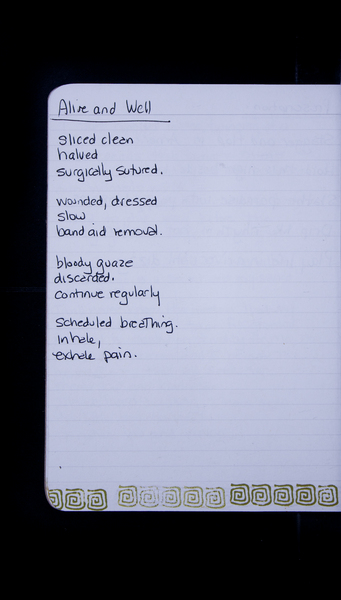 Alive and Well
sliced clean
halved
surgically sutured.
wounded, dressed
slow
band aid removal.
bloody guaze
discarded.
continue regularly
Scheduled breathing.
Inhale,
exhale pain.